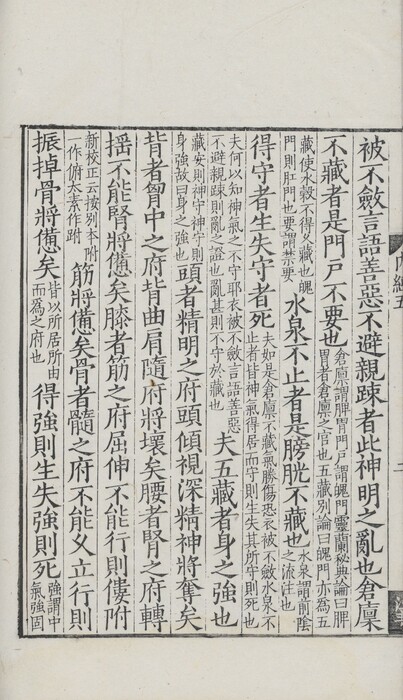 被不斂言語善惡不避親踈者此神明之亂也倉廩
不藏者是門戶不要也倉廩謂脾胃門戶謂魄門靈蘭秘典論曰脾胃者倉廩之官也五藏別論曰魄門亦爲五
藏使水穀不得久藏也魄門則肛門也要謂禁要水泉不止者是膀胱不藏也水泉謂前陰之流注也
得守者生失守者死夫如是倉廩不藏氣勝傷恐衣被不斂水泉不止者皆神氣得居而守則生失其所守則死也
夫何以知神氣之不守耶衣被不斂言語善惡不避親踈則亂之證也亂甚則不守於藏也夫五藏者身之強也
藏安則神守神守則身強故曰身之強也頭者精明之府頭傾視深精神將奪矣
背者胷中之府背曲肩隨府將壞矣腰者腎之府轉
揺不能腎將憊矣膝者筋之府屈伸不能行則僂附
新校正云按別本附一作俯太素作跗筋將憊矣骨者髓之府不能久立行則
振掉骨將憊矣皆以所居所由而爲之府也得強則生失強則死強謂中氣強固